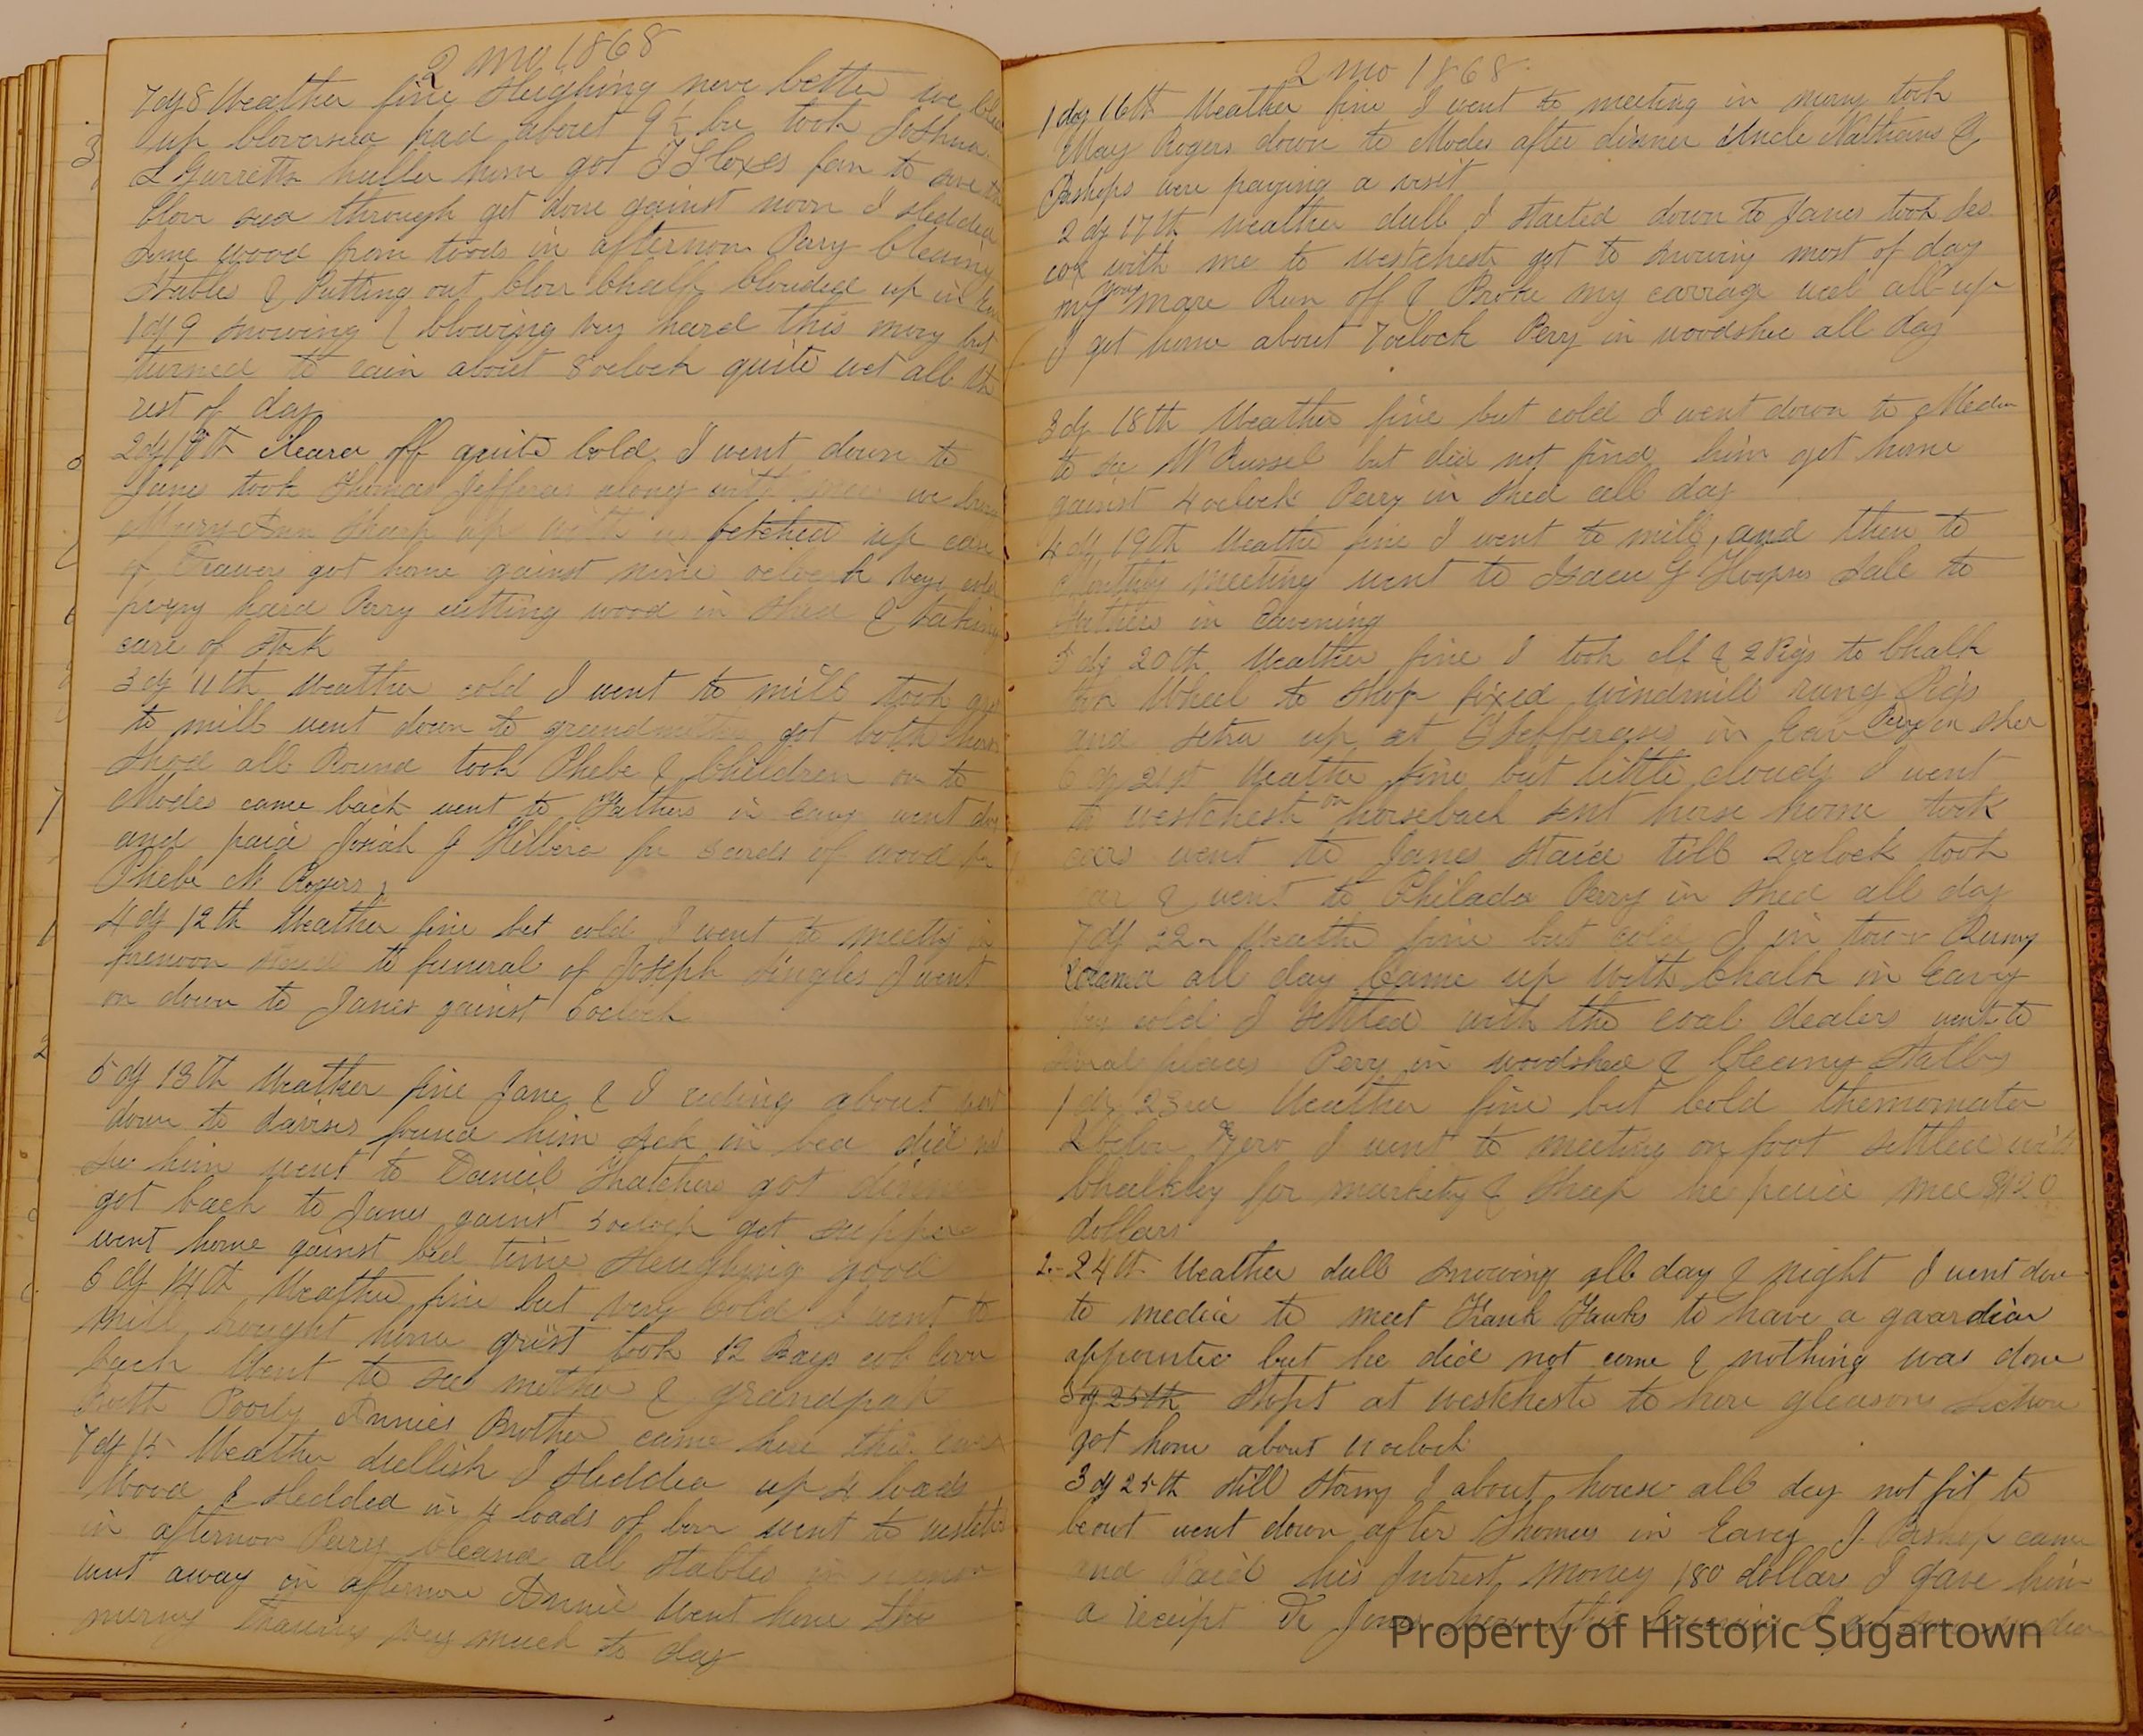 2 mo 1868
7 dy 8 Weather fine Sleighing never better we
up cloverseed had about 9½ bu took Joshua
L Garretts huller home got fan to
clover seed through got done against noon I sledded
some wood from woods in afternoon Perry Cleaning
Stables & Putting out clover Chaff Clouded up in
1 dy 9 snowing & blowing very hard this morng but
turned to rain about 8 oclock quite wet all the
rest of day
2 dy 10th Cleared off quite Cold I went down to
Janes took Thomas Jefferis along with mee we
Mary Ann Sharp up with us fetched up
of got home against nine oclock very cold
Perry cutting wood in Shed & taking
care of stock
3 dy 11th Weather cold I went to mill took
to mill went down to grandmothers got both horses
Shod all Round took Phebe & Children on to
Modes came back went to Fathers in eavng went
and paid Josiah J for cords of wood for
Phebe M Rogers
4 dy 12th Weather fine but cold I went to meeting in
forenoon to funeral of Joseph I went
on down to Janes against 6 oclock
5 dy 13th Weather fine Jane & I riding about went
down to found him sick in bed did not
see him went to Daniel Thatchers got dinner
got back to Janes against 5 oclock got supper
went home against bed time Sleighing good
6 dy 14th Weather fine but very Cold I went to
mill brought home grist took 12 Bags cob corn
back Went to see mother & grandpah
both Poorly Annies Brother came here this
7 dy 15 Weather dullish I sledded up 4 loads
Wood & sledded in 4 loads of went to
in afternoon Perry Cleand all stables in
went away in afternoon Annie Went home this
morng very much to day
2 mo 1868
1 dy 16th Weather fine I went to meeting in morng took
May Rogers down to Modes after dinner Uncle Nathans &
Bishops were paying a visit
2 dy 17th weather dull I started down to Janes took
cox with me to westchester got to snowing most of day
my gray mare Run off & Broke my carriage all up
I got home about 7 oclock Perry in woodshed all day
3 dy 18th Weather fine but cold I went down to Media
to see W Russel but did not find him got home
against 4 oclock Perry in shed all day
4 dy 19th Weather fine I went to mill, and then to
Monthly meeting went to Isaac G Hoopses Sale to
Fathers in Eavening
5 dy 20th Weather fine I took & 2 Pigs to Chalk
took Wheel to shop fixed windmill rung Pigs
and up at Jefferises in Eav Perry in shed
6 dy 21st Weather fine but little cloudy I went
to westchester on horseback sent horse home took
cars went to Janes staid till 2 oclock took
car & went to Philada Perry in shed all day
7 dy 22n Weather fine but cold I in town Runing
around all day Came up with Chalk in Eavng
very cold I settled with the coal dealers went to
several places Perry in woodshed & Cleaning Stables
1 dy 23rd Weather fine but Cold thermomater
2 below Zero I went to meeting on foot settled with
Chalkley for marketing & Sheep he paid mee $120
dollars
2 - 24th Weather dull snowing all day & night I went down
to media to meet Frank Hawks to have a guardian
appointed but he did not come & nothing was done
3 dy 25th Stopt at westchester to hear gleasons
got home about 11 oclock
3 dy 25th still Stormy I about house all day not fit to
be out went down after Thomas in Eaveg J Bishop came
and Paid his Intrest money 180 dollars I gave him
a receipt Dr Jones here this
Property of Historic Sugartown